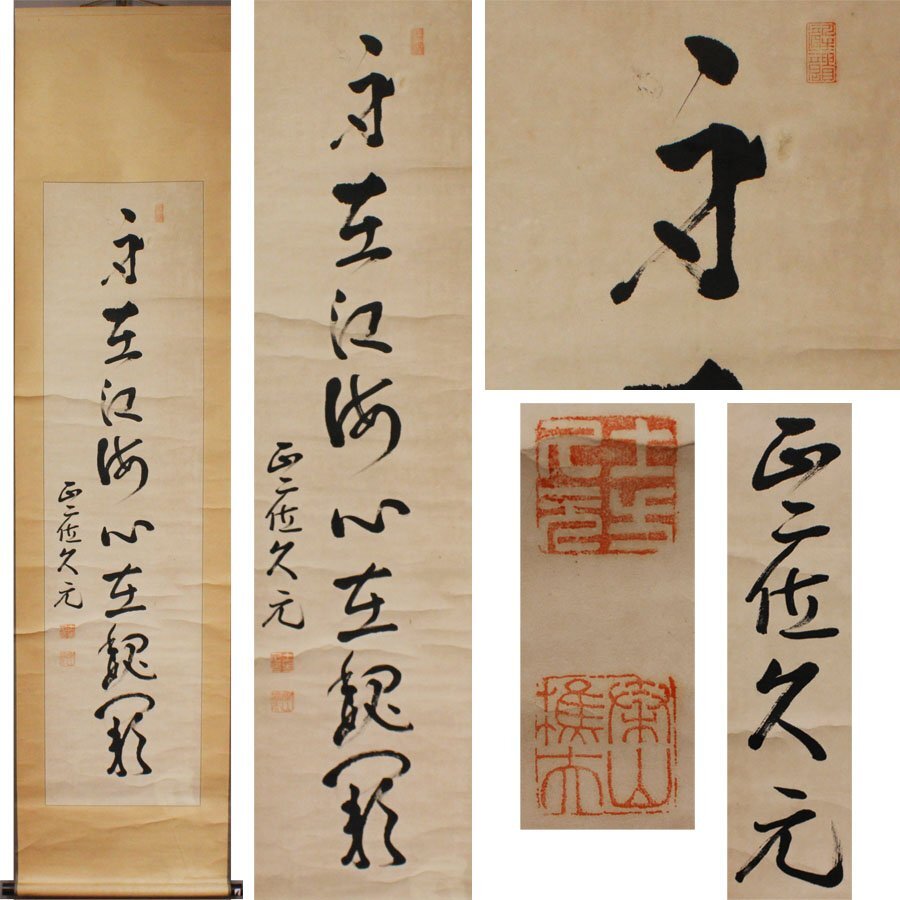 身在江海心在魏闕
正二位久元
身在江海心在魏闕
正二位久元
身
土方久元
秦山樵夫
正二位久元